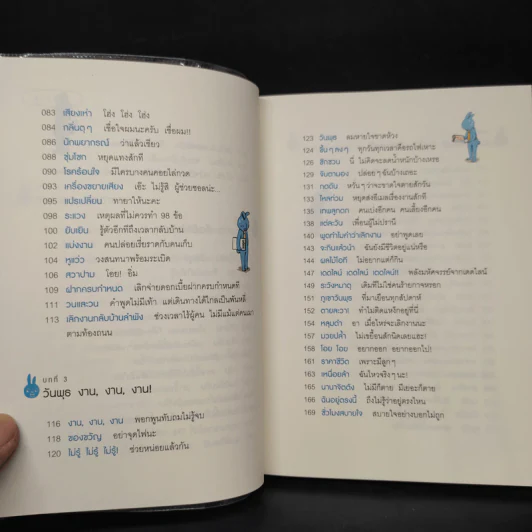 083 เสียงเห่า โฮ่ง โฮ่ง โฮ่ง
084 กลิ่นตุๆ เชื่อใจผมนะครับ เชื่อผม!!
086 นักพยากรณ์ ว่าแล้วเชียว
088 ซุ่มโซก หยุดแทงสักที
090 โรคร้อนใจ มีใครบางคนคอยไล่กวด
093 เครื่องขยายเสียง เอ๊ะ ไม่รู้สิ ผู้ช่วยชอลน่ะ...
095 แปรเปลี่ยน ทายาให้นะคะ
098 ระแวง เหตุผลที่ไม่ควรทำ 98 ข้อ
100 ยิบเย็บ รู้ตัวอีกทีถึงเวลากลับบ้าน
102 แบ่งงาน คนปล่อยเรี่ยราดกับคนเก็บ
104 หูแว่ว วงสนทนาพร้อมระเบิด
106 สวาปาม โฮย! อิ่ม
109 ฝากครบกำหนด เลิกจ่ายดอกเบี้ยฝากครบกำหนดที
111 วนและวน คำพูดไม่มีเท้า แต่เดินทางได้ไกลเป็นพันลี้
113 เลิกงานกลับบ้านลำพัง ช่วงเวลาไร้ผู้คน ไม่มีแม้แต่คนเมา
ตามท้องถนน
บทที่ 3
วันพุธ งาน, งาน, งาน!
116 งาน, งาน, งาน พอกพูนทับถมไม่รู้จบ
118 ของขวัญ อย่าจุดไฟนะ
120 ไม่รู้ ไม่รู้ ไม่รู้! ช่วยหน่อยแล้วกัน
123 วันพุธ ลมหายใจขาดห้วง
124 ลื่นๆ ลงๆ ทุกวันทุกเวลาคือรถไฟเหาะ
128 ชักชวน นี่ ไม่คิดจะลดน้ำหนักบ้างเหรอ
129 จับตามอง ปล่อยๆ ฉันบ้างเถอะ
131 กดดัน หวั่นๆ ว่าจะขาดใจตายสักวัน
133 โหลท่วม หยุดส่งอีเมลเรื่องงานสักที
135 เทพสุภาต คนเบ่งอีกคน คนเลี้ยงอีกคน
138 แต่ละวัน เพื่อนผู้ไม่ปรานี
140 พูดทำไมคำว่าเลิกงาน อย่าพูดเลย
143 จะกินแล้วน้า ฉันยังมีชีวิตอยู่แน่หรือ
144 ผลไม้โอที ไม่อยากแตก็กิน
147 เดดไลน์ เดดไลน์ เดดไลน์!! พลังมหัศจรรย์จากเดดไลน์
149 ระวังหมาดุ เดิมทีไม่ใช่คนร้ายกาจหรอก
151 ดูซาวันพุธ ที่มาเยือนทุกสัปดาห์
152 ตายละวา! ทำไมติดแหง็กอยู่ที่นี่
154 หลุมดำ อา เมื่อไหร่จะเลิกงานนะ
157 บวงปล้ำ ไม่เขยื้อนสักนิดเลยแฮะ!
158 โอย โอย อยากออก อยากออกไป!
161 ราคาชีวิต เพราะมีลูกๆ
163 เหนื่อยล้า ฉันไหวจริงๆ นะ!
165 นานาจิตตัง ไม่มีก็ตาย มีเยอะก็ตาย
166 ฉันอยู่ตรงนี้ ถึงไม่รู้ว่าอยู่ตรงไหน
169 ชั่วโมงสบายใจ สบายใจอย่างบอกไม่ถูก